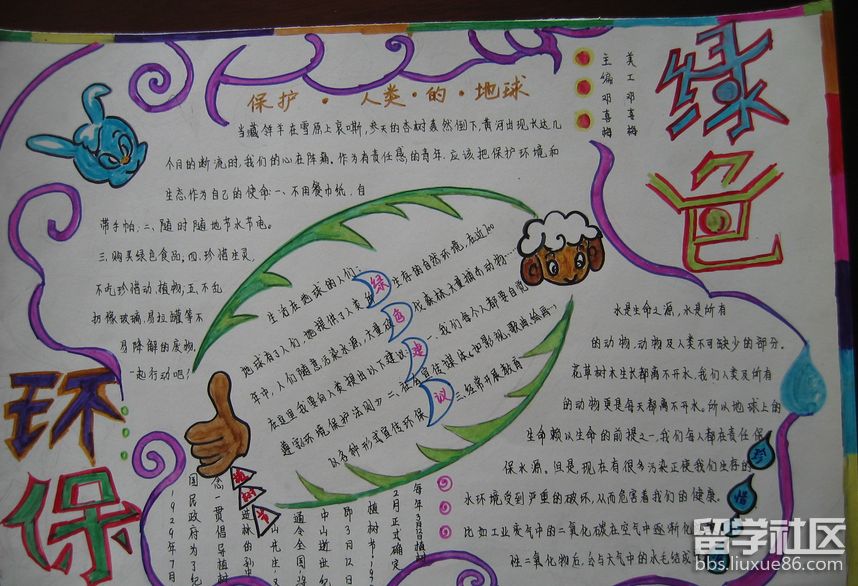 绿色
环保
主编 邓喜梅
美工 邓喜梅
保护·人类·的·地球
当藏羚羊在雪原上哀嘶,参天的杏树轰然倒下,黄河出现长达几
个月的断流时,我们的心在阵痛。作为有责任感的青年,应该把保护环境和
生态作为自己的使命:一、不用餐巾纸,自
带手帕,二、随时随地节水节电。
三、购买绿色食品。四、珍惜生灵,
不吃珍惜动、植物;五、不乱
扔橡玻璃、易拉罐等不
易降解的废物,
一起行动吧!
生活在地球的人们:
地球有了人们,她提供了人类的生存的自然环境,在近100
年中,人们随意污染水源,大量砍伐森林,大量捕杀动物…
在这里我要向人类提出以下建议:一、我们每个人都要自觉
遵守《环境保护法则》二、社会宣传媒体(如影视、歌曲、绘画…)
以各种形式宣传环保 三、经常开展教育
绿色建议
水是生命之源,水是所有
的动物,动物及人类不可缺少的部分。
花草树木生长都离不开水,我们人类及所有
的动物更是每天都离不开水。所以地球上的
生命赖以生命的前提之一,我们每人都在责任保
保水源,但是,现在有很多污染正使我们生存的
水环境受到严重的破坏,从而危害着我们的健康。
比如工业废气中的二氧化碳在空气中逐渐化
硫二氧化物后,会与大气中的水毛结成
珍惜水
植树节
每年3月12日植树
2月正式确定
植树节,19
即3月12日
中山逝世纪
通令全国,将
山先生
造林的
念一贯倡导植树
国民政府为了纪
1929年7月
留学社区
bbs.liuxue86.com